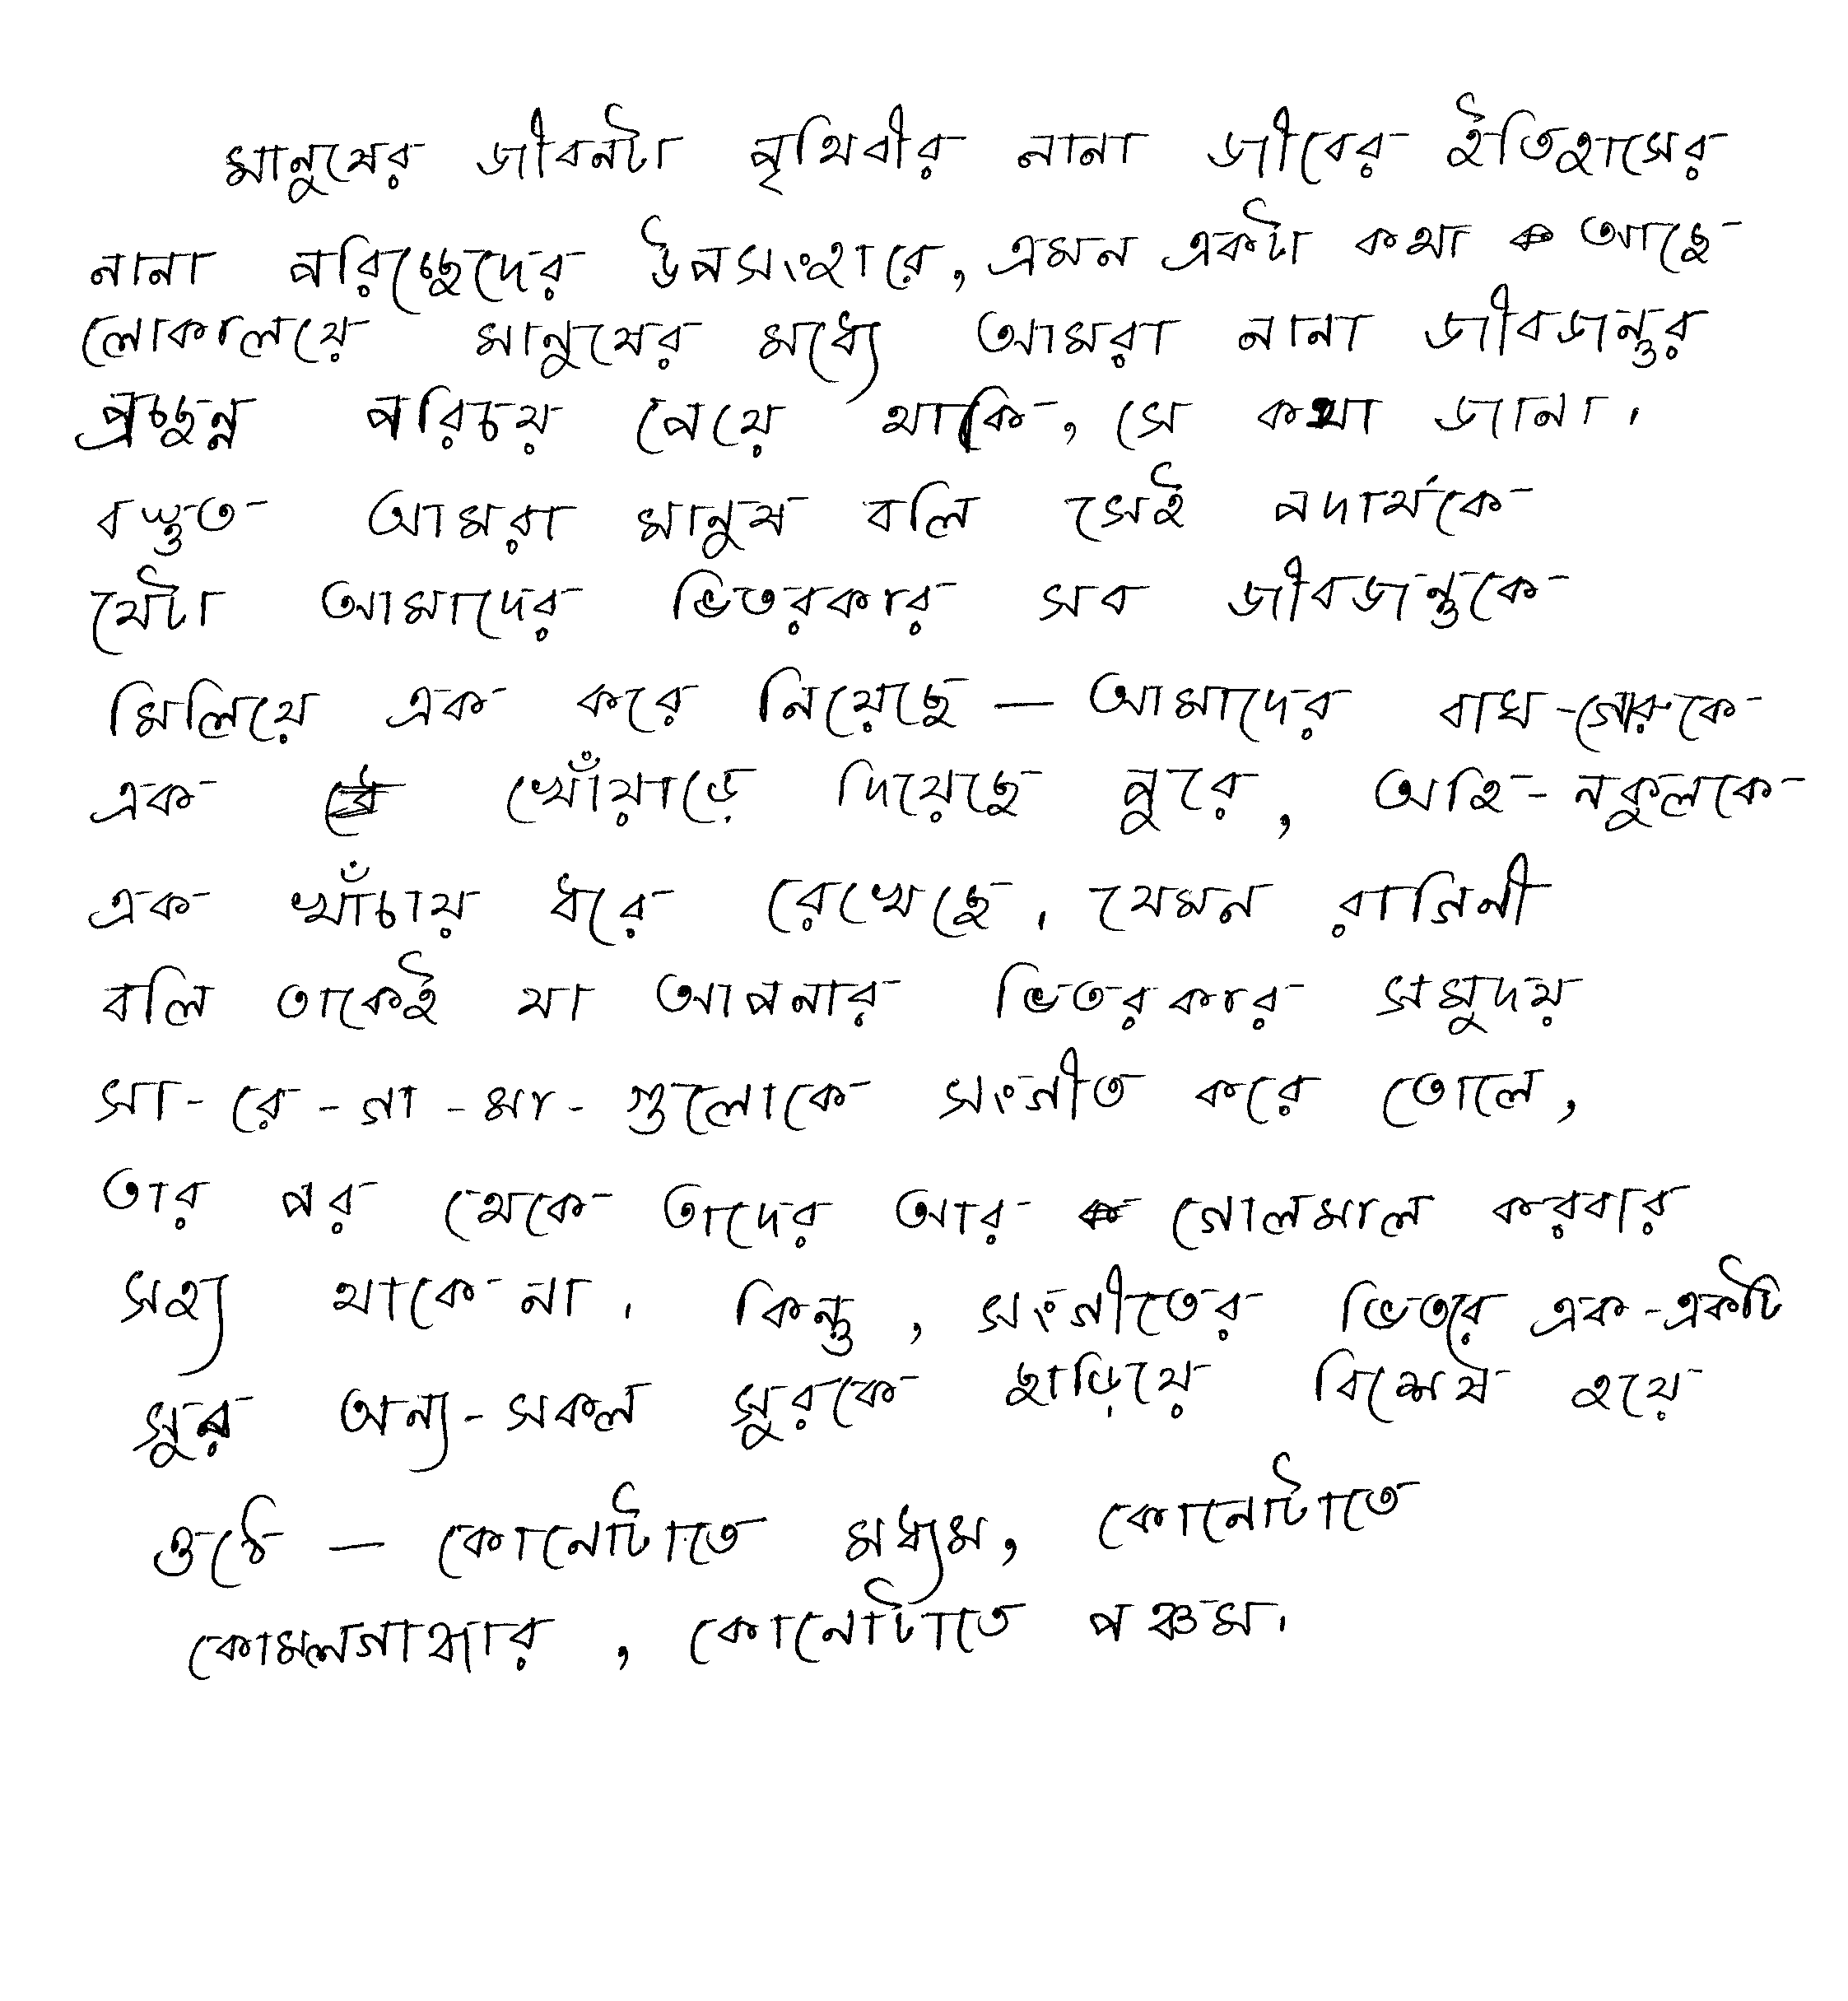 মানুষের জীবনটা পৃথিবীর নানা জীবের ইতিহাসের
নানা পরিচ্ছেদের উপসংহারে, এমন একটা কথা আছে
লোকালয়ে মানুষের মধ্যে আমরা নানা জীবজন্তুর
প্রচ্ছন্ন পরিচয় পেয়ে থাকি, সে কথা জানা।
বস্তুত আমরা মানুষ বলি সেই পদার্থকে
যেটা আমাদের ভিতরকার সব জীবজন্তুকে
মিলিয়ে এক করে নিয়েছে — আমাদের বাঘ-গোরুকে
এক খোঁয়াড়ে দিয়েছে পুরে, অহি-নকুলকে
এক খাঁচায় ধরে রেখেছে। যেমন রাগিনী
বলি তাকেই যা আপনার ভিতরকার সমুদয়
সা-রে-গা-মা-গুলোকে সংগীত করে তোলে,
তার পর থেকে তাদের আর গোলমাল করবার
সহ্য থাকে না। কিন্তু, সংগীতের ভিতরে এক-একটি
সুর অন্য-সকল সুরকে ছাড়িয়ে বিশেষ হয়ে
ওঠে — কোনোটাতে মধ্যম, কোনোটাতে
কোমলগান্ধার, কোনোটাতে পঞ্চম।